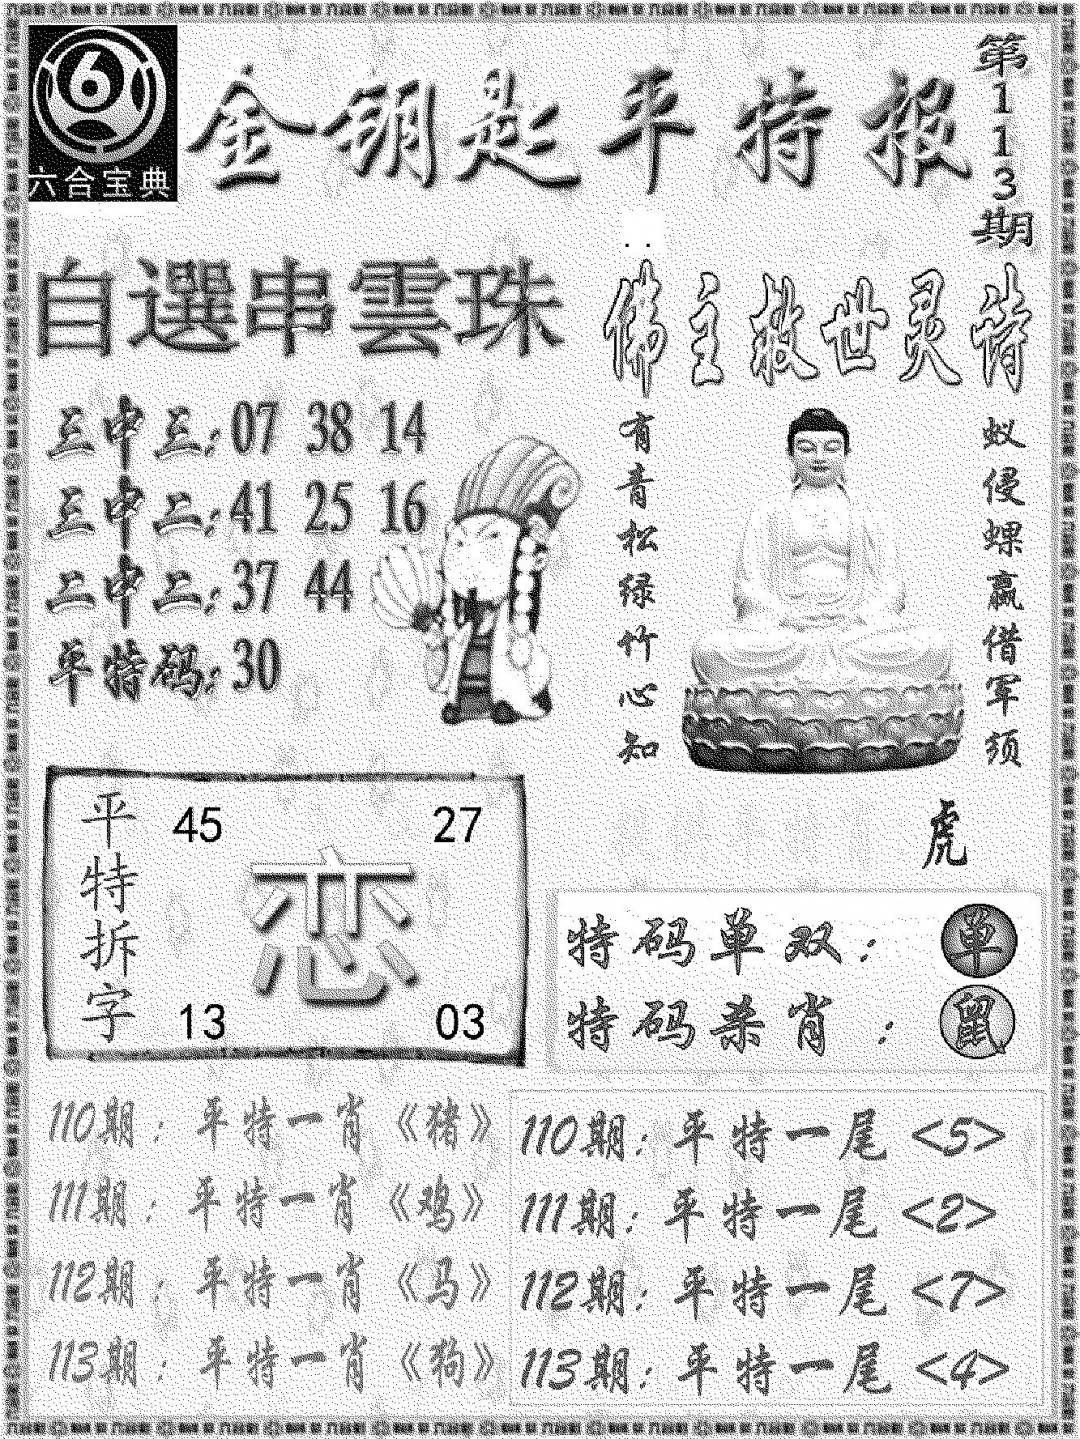 6
六合宝典
金钥匙平特报
第113期
自選串雲珠
三中三:07 38 14
三中二:41 25 16
二中二:37 44
单特码:30
佛主救世灵诗
蚁侵蜾蠃借军须
有青松绿竹心知
虎
平特拆字
45 27
恋
13 03
特码单双:单
特码杀肖:鼠
110期:平特一肖《猪》
111期:平特一肖《鸡》
112期:平特一肖《马》
113期:平特一肖《狗》
110期:平特一尾<5>
111期:平特一尾<2>
112期:平特一尾<7>
113期:平特一尾<4>